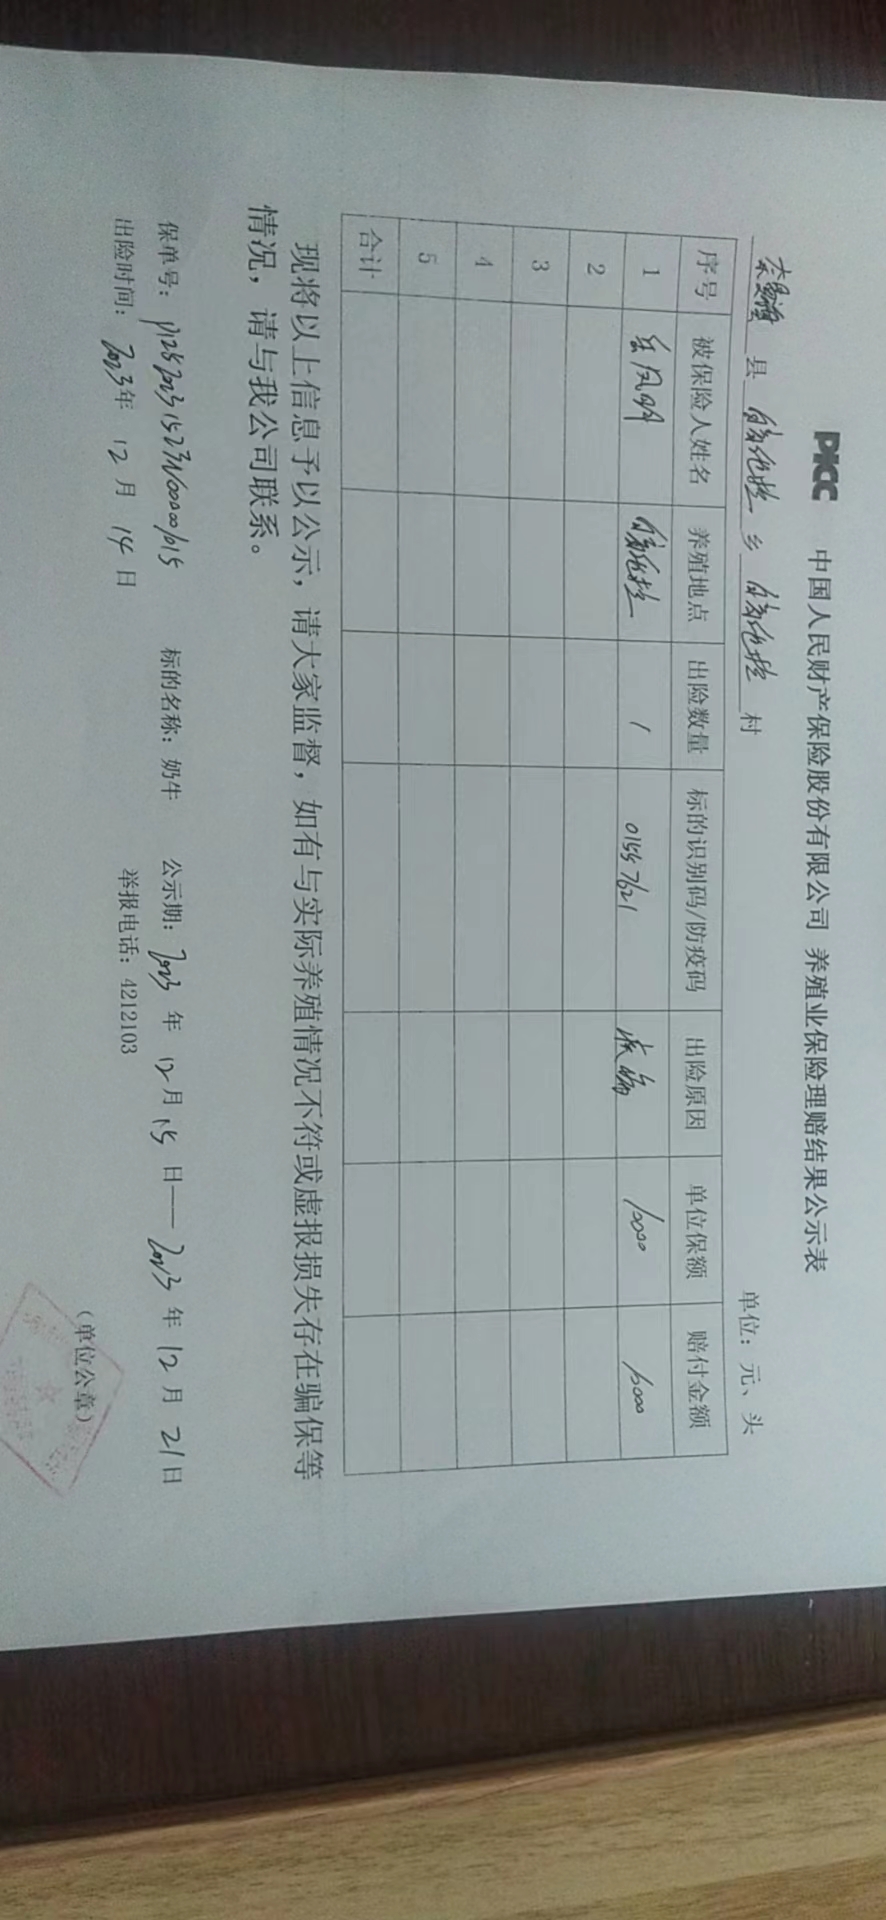 PICC 中国人民财产保险股份有限公司 养殖业保险理赔结果公示表
县 乡 村 单位：元、头
序号 被保险人姓名 养殖地点 出险数量 标的识别码/防疫码 出险原因 单位保额 赔付金额
1 1 01557621 疾病 10000 10000
2
3
4
5
合计
现将以上信息予以公示，请大家监督，如有与实际养殖情况不符或虚报损失存在骗保等
情况，请与我公司联系。
保单号： 标的名称：奶牛 公示期：2023年12月15日—2023年12月21日
出险时间：2023年12月14日 举报电话：4212103
（单位公章）